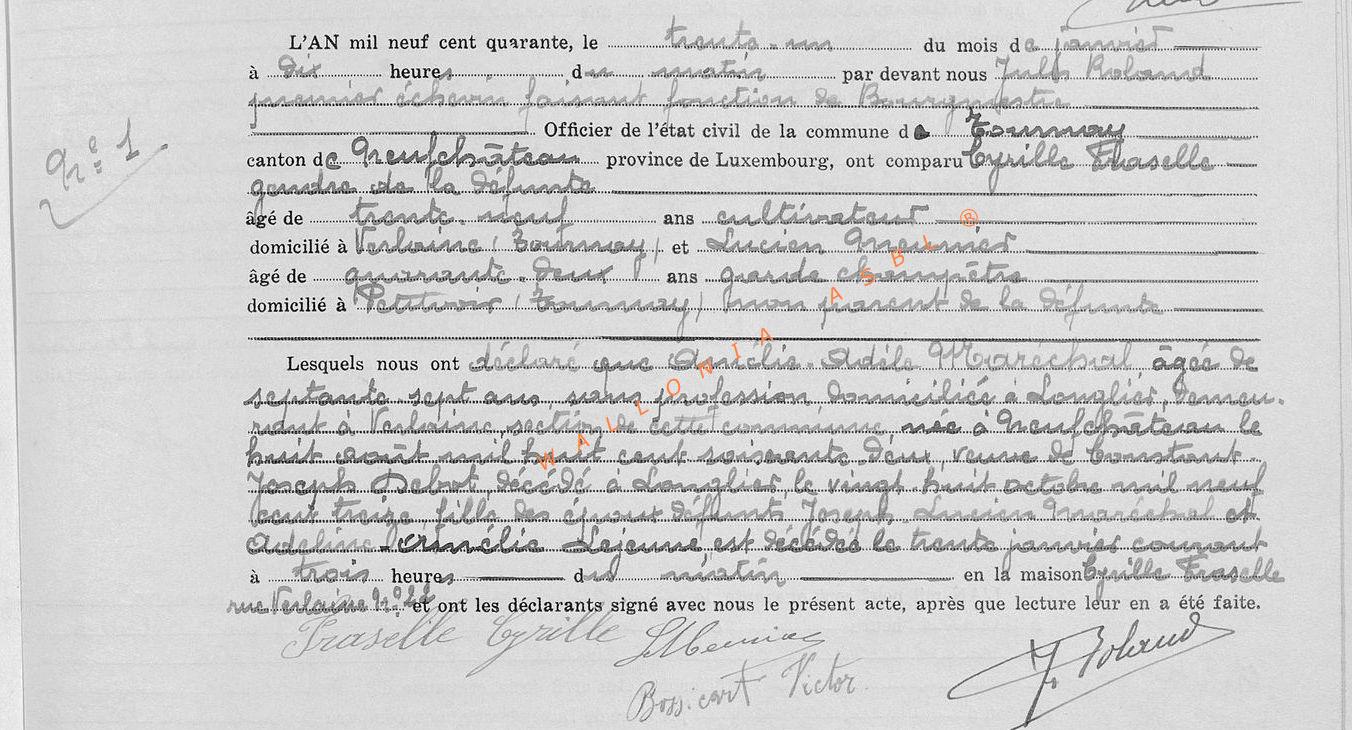 L'AN mil neuf cent quarante, le trente-un du mois de janvier
à dix heures du matin par devant nous Jules Boland
premier échevin faisant fonction de Bourgmestre
Officier de l'état civil de la commune de Tournay
Nº 1
canton de Neufchâteau province de Luxembourg, ont comparu Cyrille Fraselle
gendre de la défunte
âgé de trente-neuf ans cultivateur
domicilié à Verlaine (Tournay) et Lucien Meunier
âgé de quarante-deux ans garde champêtre
domicilié à Petitvoir (Tournay) non parent de la défunte
Lesquels nous ont déclaré que Amélie-Adèle Maréchal âgée de
septante-sept ans, sans profession, domiciliée à Longlier, demeu-
rant à Verlaine, section de cette commune, née à Neufchâteau le
huit août mil huit cent soixante-deux, veuve de Constant
Joseph décédé à Longlier, le vingt huit octobre mil neuf
cent treize, fille des époux défunts Joseph-Lucien Maréchal et
Adeline-Amélie Lejeune est décédée le trente janvier courant
à trois heures du matin en la maison Cyrille Fraselle
rue Verlaine Nº et ont les déclarants signé avec nous le présent acte, après que lecture leur en a été faite.
Fraselle Cyrille LMeunier J. Boland
Bossicart Victor
WALLONIA ASBL ®